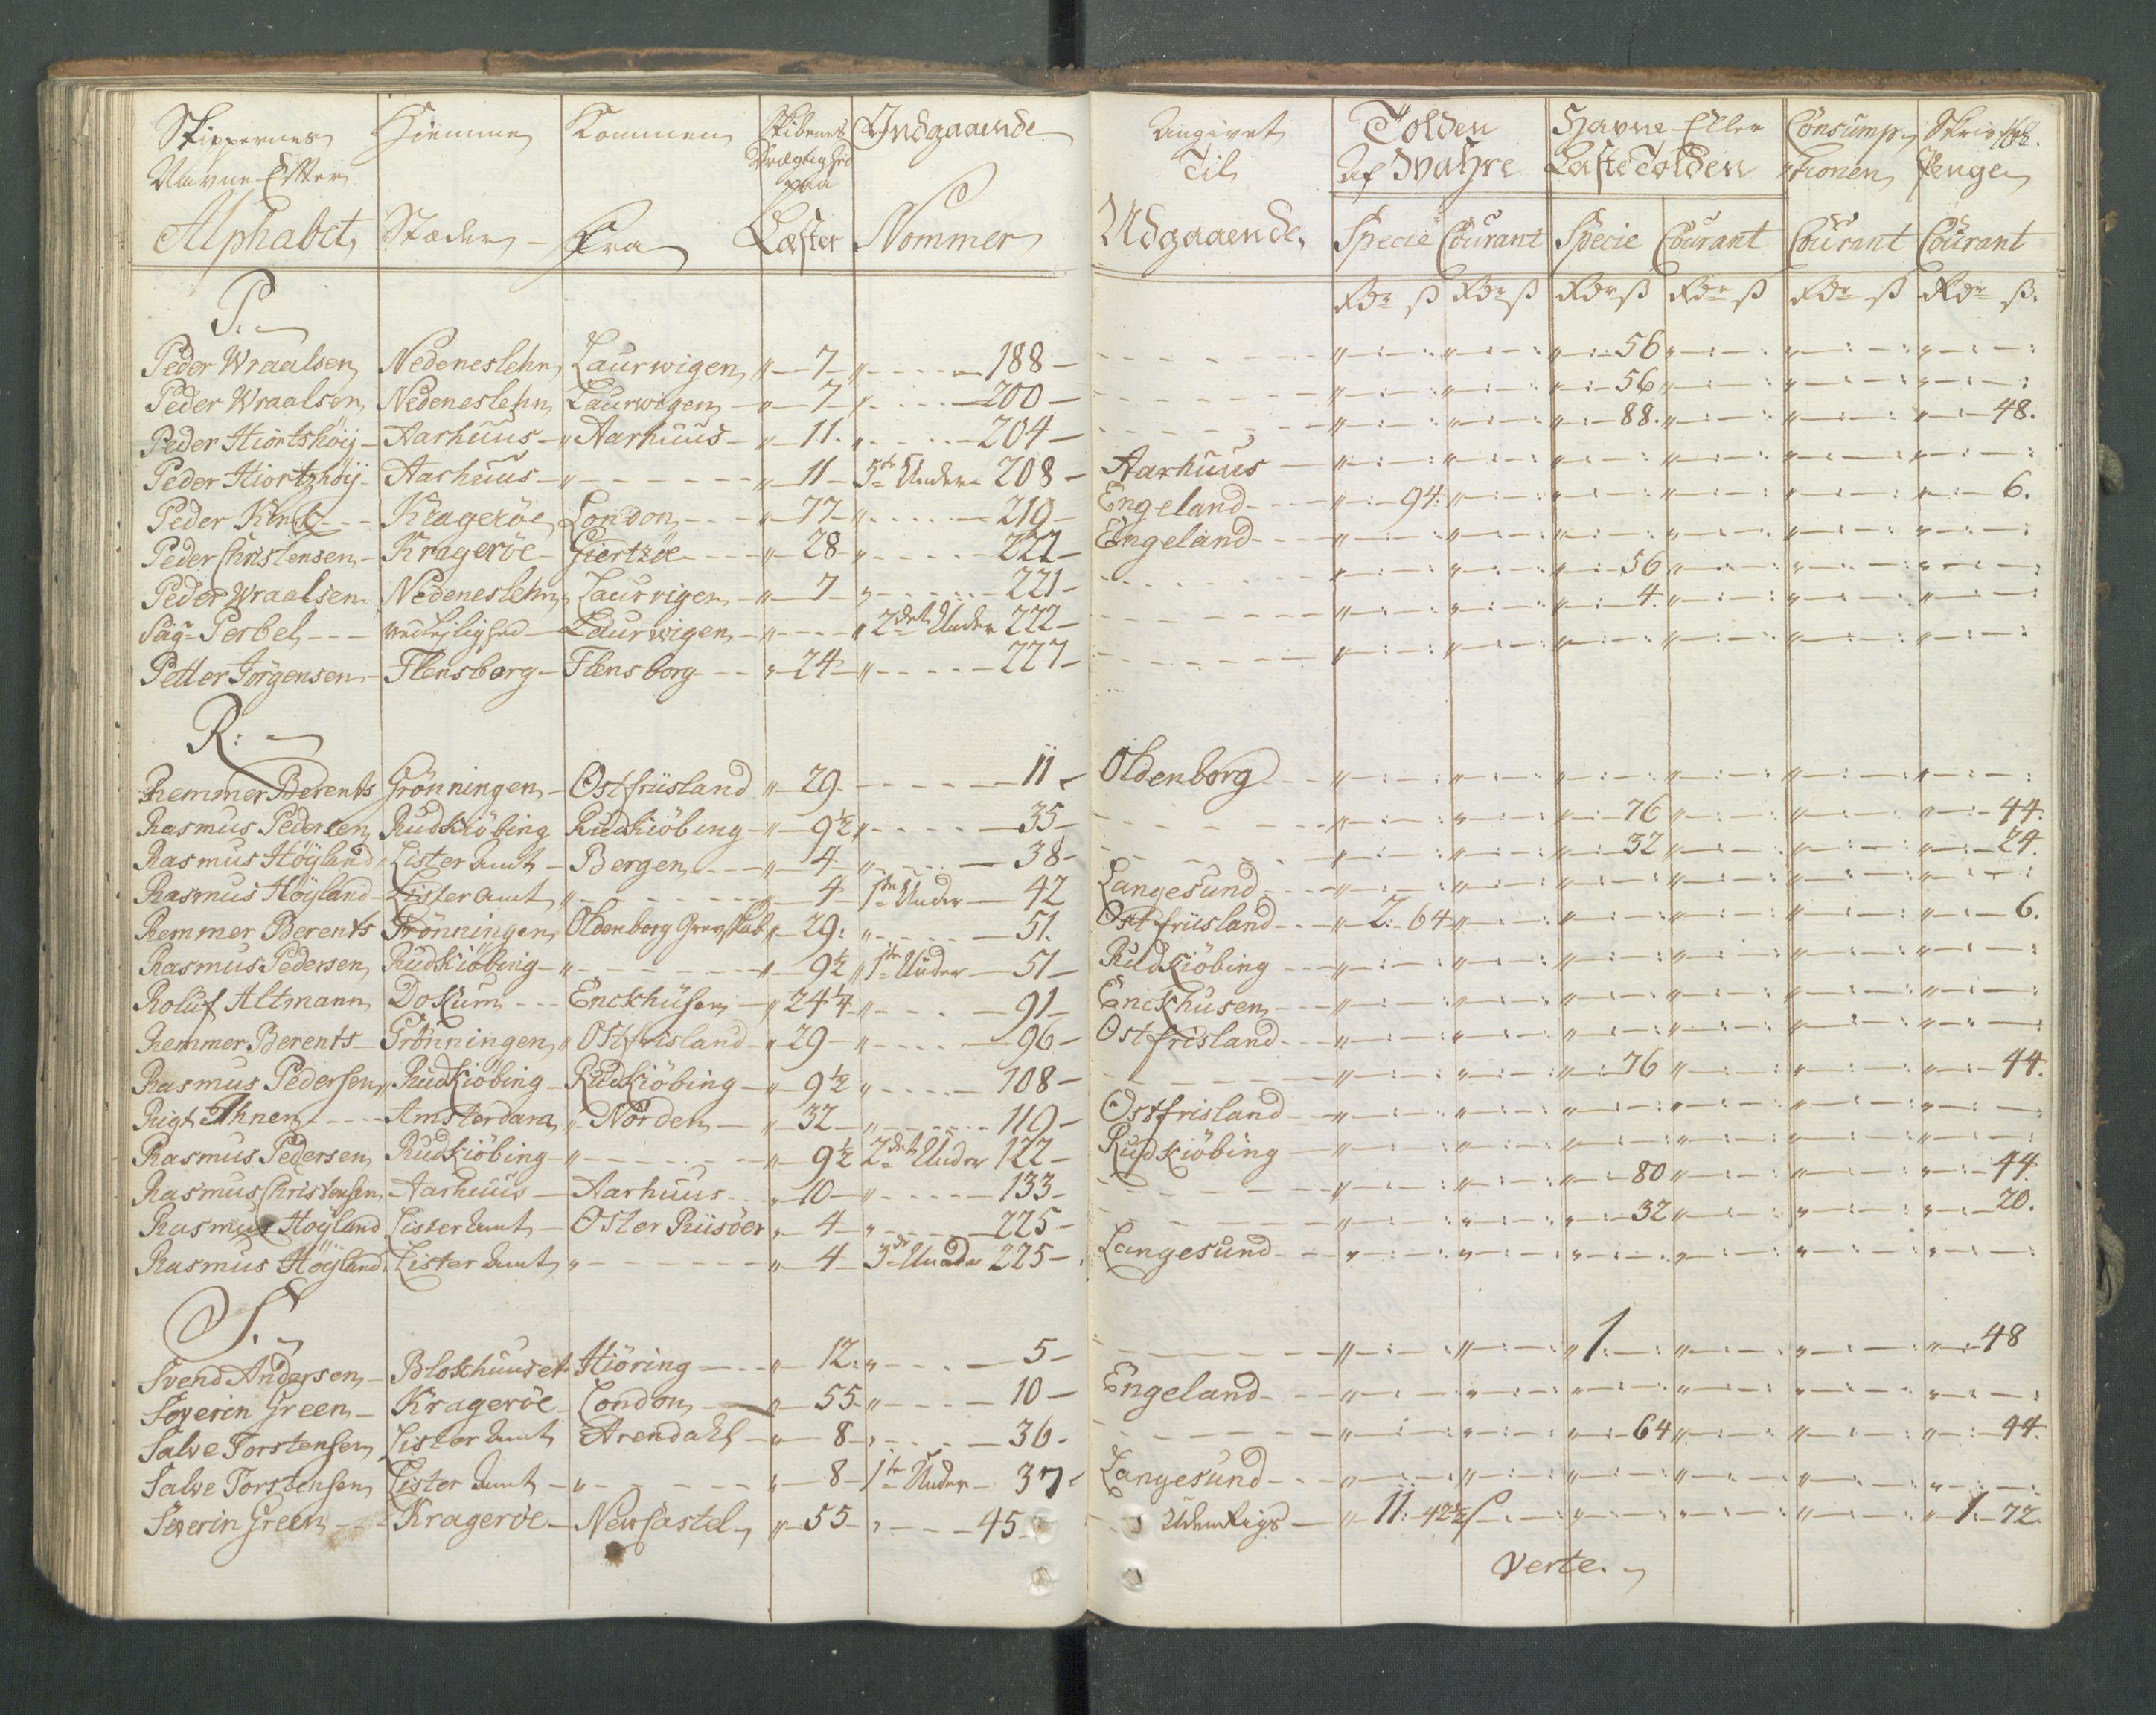 Skippernes Hiemme Kommen Skibenes Indgaaende
Navne Efter Drægtighed paa
Alphabet Stæder Fra Læster Nommer
Angivet Tolden Havne Eller Consump- Skriver
Til Af Wahre Læste Tolden tionen Penge
Udgaaende, Specie Courant Specie Courant Courant Courant
Rdr ß Rdr ß Rdr ß Rdr ß Rdr ß Rdr ß.
P.
Peder Wraalsen Nedeneslehn Laurwigen 7 188 56
Peder Wraalsen Nedeneslehn Laurwigen 7 200 56
Peder Hiortshöÿ Aarhuus Aarhuus 11. 204 88. 48.
Peder Hiortzhöÿ Aarhuus 11 5te Under 208 Aarhuus
Peder Krageröe London 77 219 Engeland 94. 6.
Peder Christensen Krageröe Giertzöe 28 222 Engeland
Peder Wraalsen Nedeneslehn Laurvigen 7 221 56
Perbel Laurwigen 2det Under 222 4.
Petter Jörgensen Flensborg Flensborg 24 227
R:
Remmer Berents Grönningen Ostfriisland 29. 11 Oldenborg
Rasmus Pedersen Rudkiöbing Rudkiöbing 9½ 35 76 44.
Rasmus Höÿland Lister Amt Bergen 4 38 32 24.
Rasmus Höÿland Lister Amt 4 1te Under 42 Langesund
Remmer Berents Grönningen Oldenborg Grevskab 29: 51. Ostfriisland 2. 64 6.
Rasmus Pedersen Rudkiöbing 9½ 1te Under 51 Rudkiöbing
Roluf Altmann Dokum Enckhusen 24¼ 91 Enckhusen
Remmer Berents Grönningen Ostfrisland 29 96 Ostfrisland
Rasmus Pedersen Rudkiöbing Rudkiöbing 9½ 108 76 44.
Rigt Ihnen Amsterdam Norden 32 119 Ostfrisland
Rasmus Pedersen Rudkiöbing 9½ 2det Under 122 Rudkiöbing
Rasmus Christensen Aarhuus Aarhuus 10 133 80 44.
Rasmus Höÿland Lister Amt Oster Riisöer 4 225 32 20.
Rasmus Höÿland Lister Amt 4 3de Under 225 Langesund
S.
Svend Andersen Blokhuuset Hiöring 12. 5 1. 48
Severin Green Krageröe London 55 10 Engeland
Salve Torstensen Lister Amt Arendahl 8 36. 64 44.
Salve Torstensen Lister Amt 8 1te Under 37 Langesund
Severin Green Krageröe Newcastel 55 45 Udenrigs 11. 42½ 1. 72.
Verte.